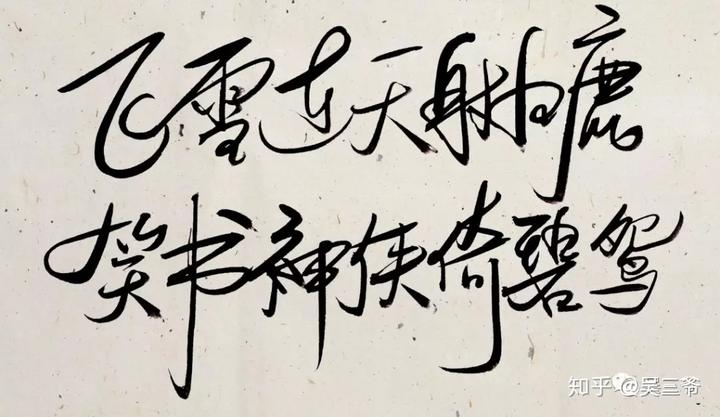 飞雪连天射白鹿
笑书神侠倚碧鸳
知乎 @吴三爷